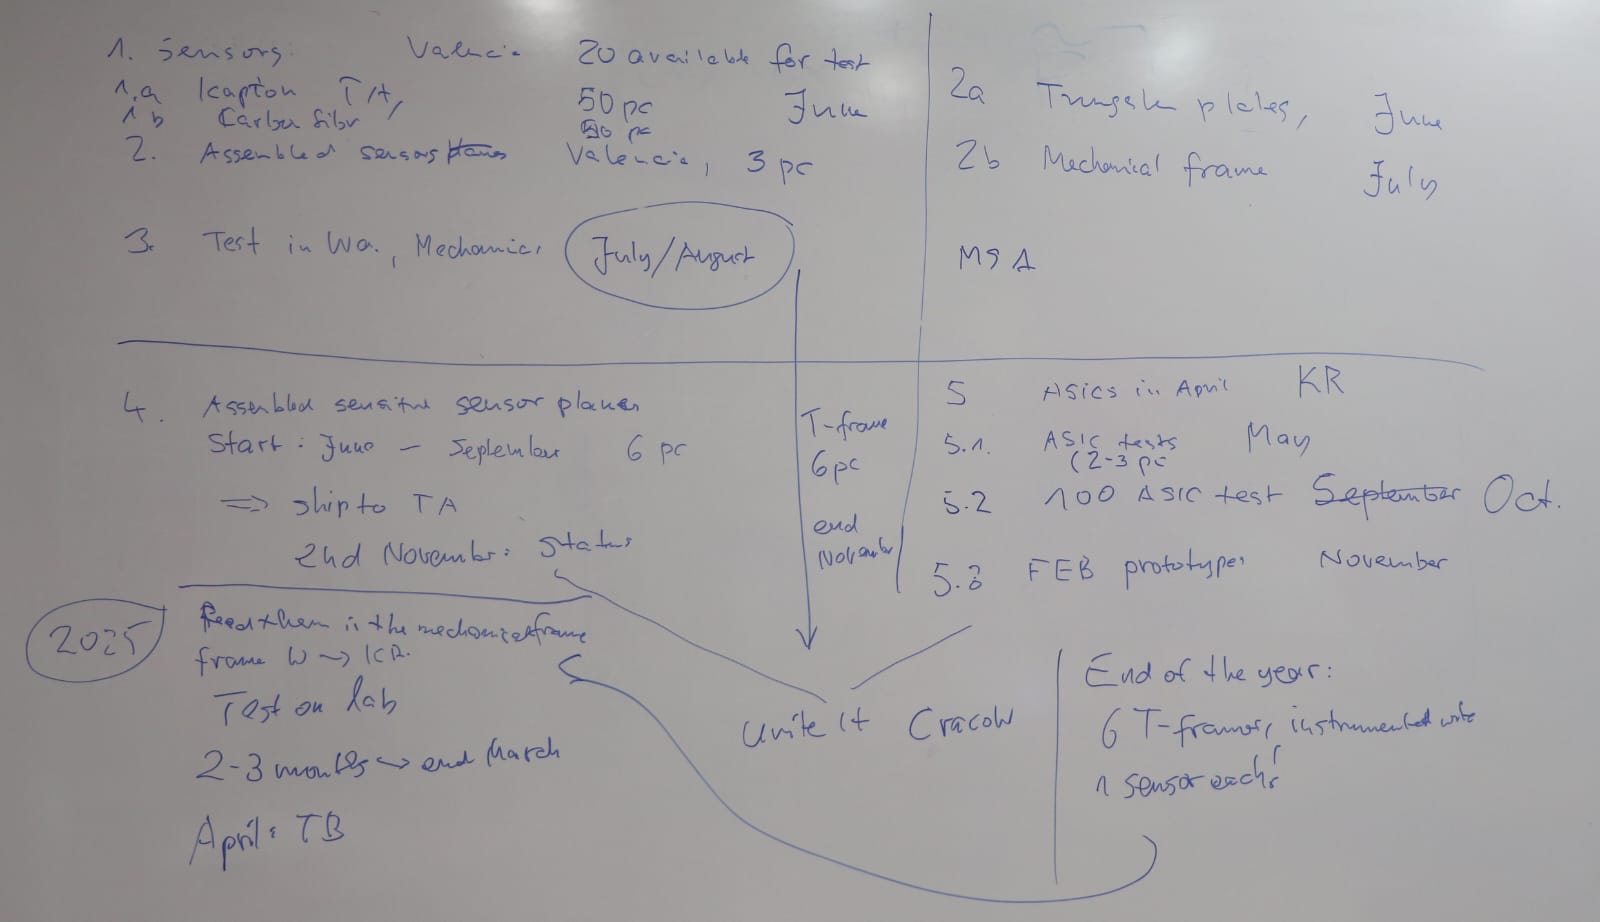 1. Sensors: Valencia 20 available for test
1.a Kapton TA, 50 pc June
1 b Carbon fibr 50 pc
2. Assembled sensors planes Valencia, 3 pc
3. Test in Wa., Mechanics July/August
2a Tungsten plates, June
2b Mechanical frame July
4. Assembled sensitive sensor planes
Start: June - September 6 pc
=> ship to TA
2nd November: Status
T-frame
6 pc
end
November
5 ASICs in April KR
5.1. ASIC tests May
(2-3 pc
5.2 100 ASIC test September Oct.
5.3 FEB prototypes November
2025
them in the mechanical frame
frame W → KR.
Test on lab
2-3 months → end March
April: TB
Unite it Cracow
End of the year:
6 T-frames, instrumented with
1 sensor each!